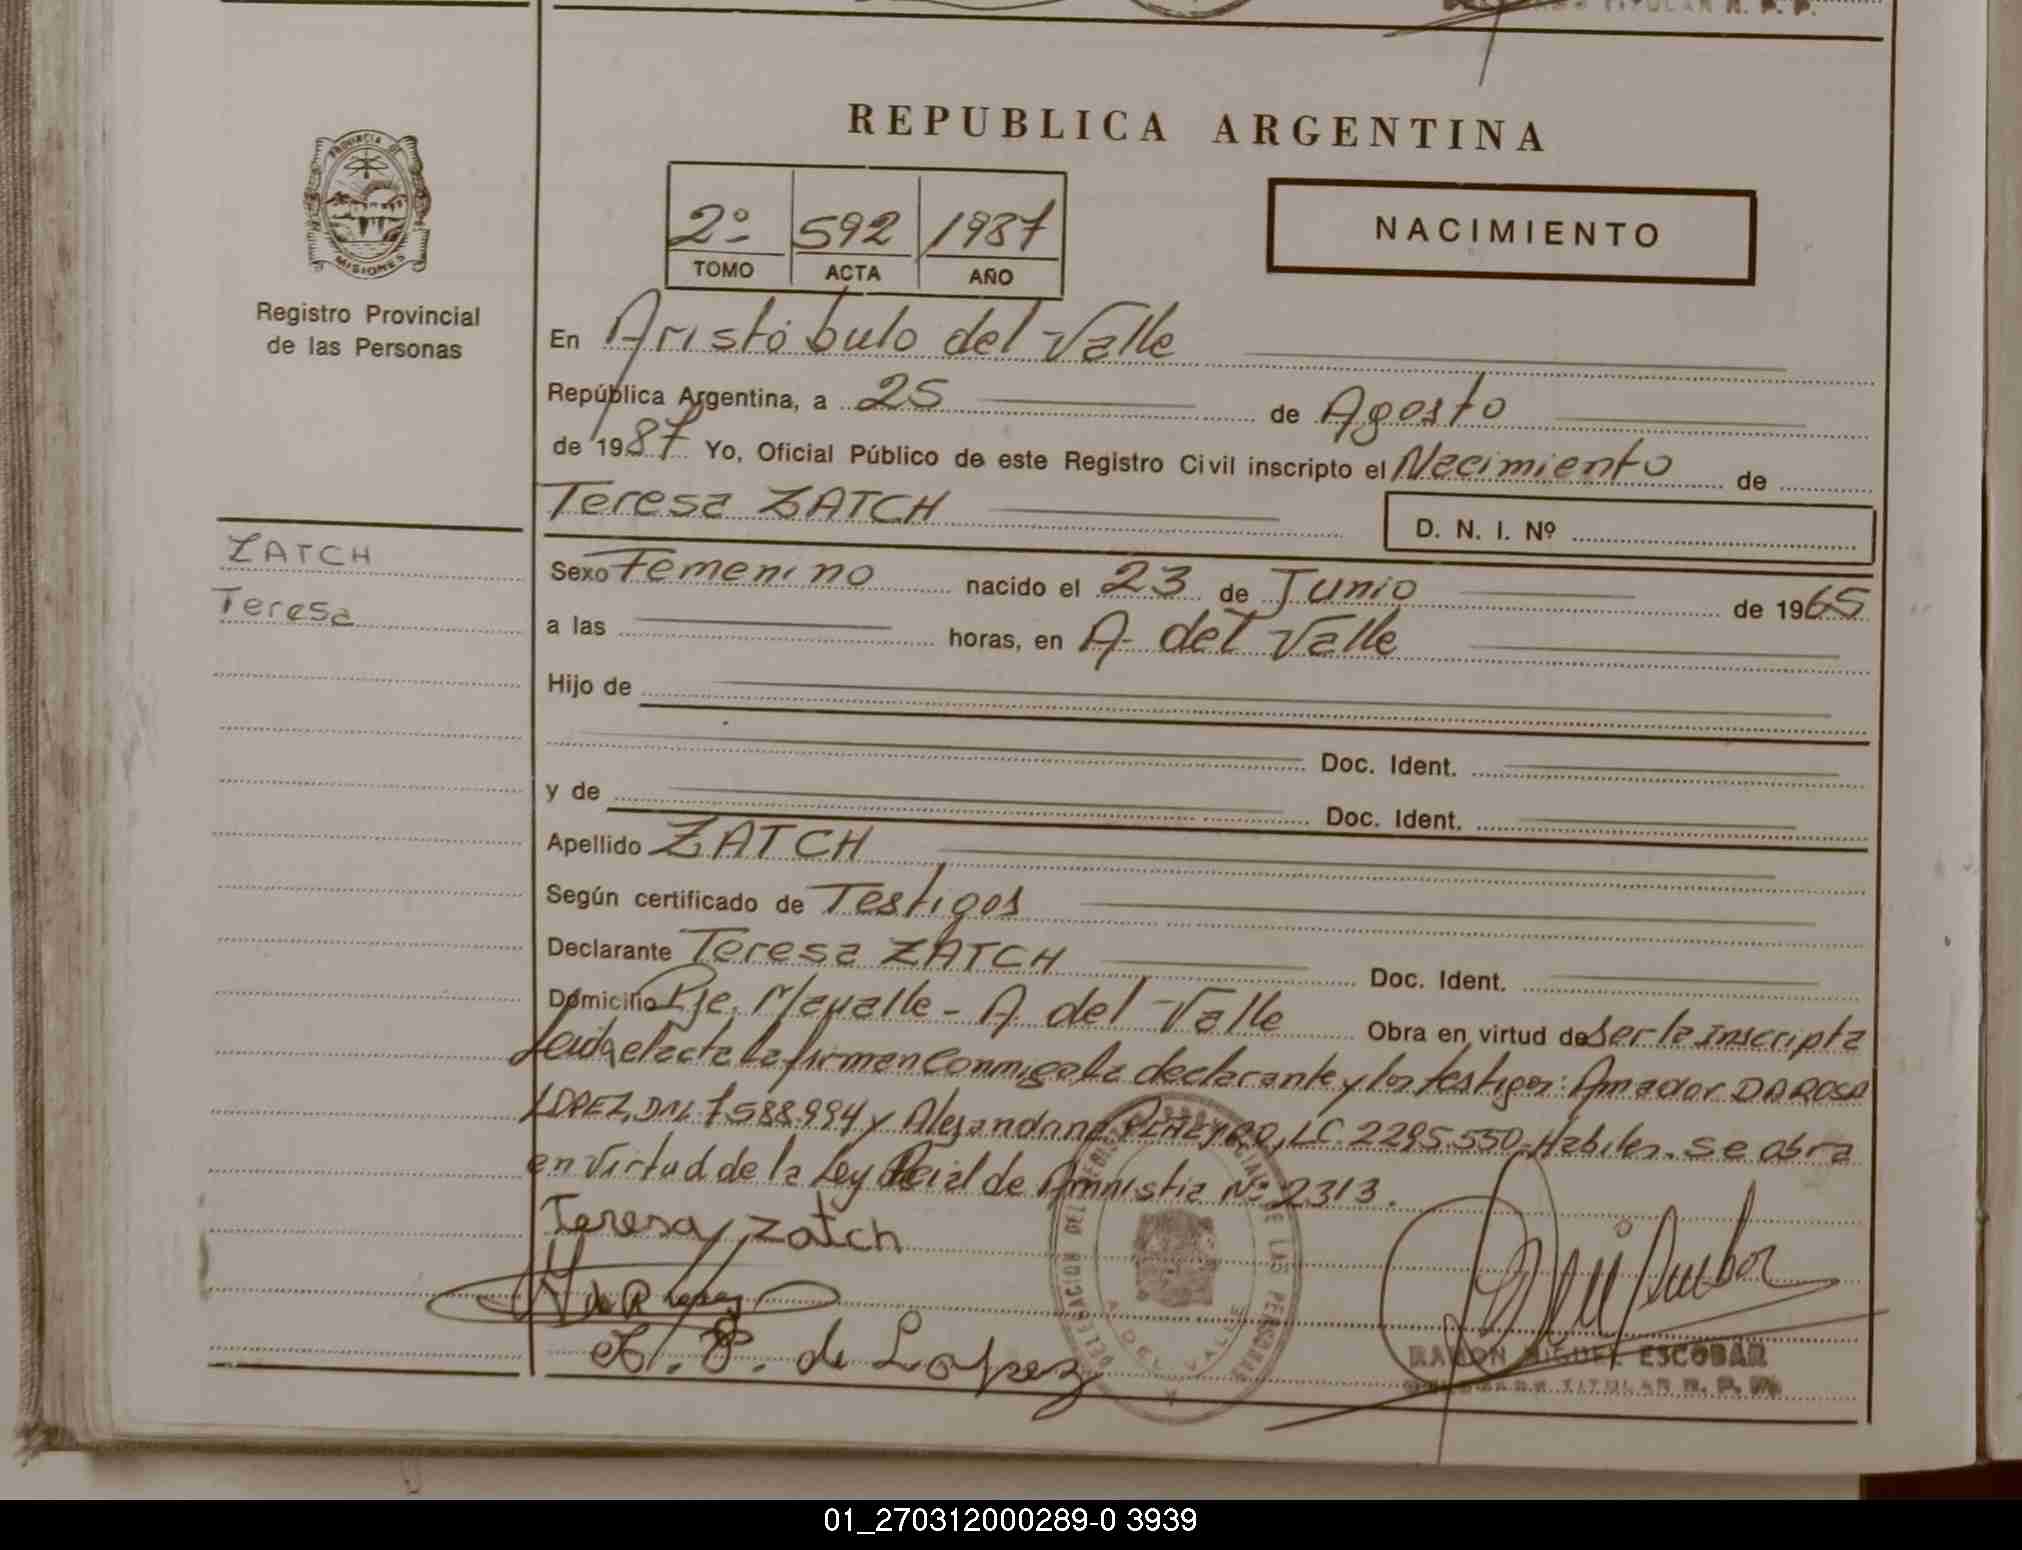 TITULAR R. P. P.
REPUBLICA ARGENTINA
PROVINCIA DE
MISIONES
2º 592 1987
TOMO ACTA AÑO
NACIMIENTO
Registro Provincial
de las Personas
En Aristóbulo del Valle
República Argentina, a 25 de Agosto
de 1987 Yo, Oficial Público de este Registro Civil inscripto el Nacimiento de
Teresa ZATCH
D. N. I. Nº
ZATCH
Teresa
Sexo Femenino nacido el 23 de Junio de 1965
a las horas, en A. del Valle
Hijo de
Doc. Ident.
y de Doc. Ident.
Apellido ZATCH
Según certificado de Testigos
Declarante Teresa ZATCH Doc. Ident.
Domicilio Pje. Mavalle - A. del Valle Obra en virtud de ser la inscripta
Leida el acta la firman conmigo la declarante y los testigos: Amador DA ROSA
LOPEZ, DNI. 7.588.994 y Alejandrina LC. 2295.550. Habiles. se obra
en virtud de la Ley Pcial de Amnistia Nº 2313.
Teresa Zatch
A de R Lopez
A. P. de Lopez
DELEGACION DEL REGISTRO PROVINCIAL DE LAS PERSONAS
A. DEL VALLE
RAMON MIGUEL ESCOBAR
DELEGADO TITULAR R. P. P.
01_270312000289-0 3939